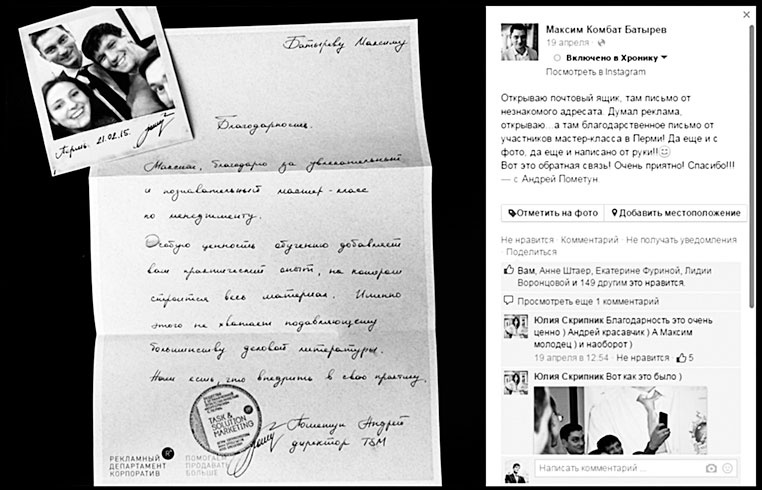 Пермь. 21.02.15.
Батыреву Максиму
Благодарность.
Максим, благодарю за увлекательный
и познавательный мастер-класс
по менеджменту.
Особую ценность обучению добавляет
вам практический опыт, на котором
строится весь материал. Именно
этого не хватает подавляющему
большинству деловой литературы.
Нам есть, что внедрить в свою практику.
TASK &
SOLUTION
MARKETING
Пометун Андрей
директор TSM
РЕКЛАМНЫЙ
ДЕПАРТАМЕНТ
КОРПОРАТИВ
ПОМОГАЕМ
ПРОДАВАТЬ
БОЛЬШЕ
Максим Комбат Батырев
19 апреля
Включено в Хронику
Посмотреть в Instagram
Открываю почтовый ящик, там письмо от
незнакомого адресата. Думал реклама,
открываю...а там благодарственное письмо от
участников мастер-класса в Перми! Да еще и с
фото, да еще и написано от руки!!
Вот это обратная связь! Очень приятно! Спасибо!!!
— с Андрей Пометун.
Отметить на фото Добавить местоположение
Не нравится · Комментарий · Не получать уведомления
· Поделиться
Вам, Анне Штаер, Екатерине Фуриной, Лидии
Воронцовой и 149 другим это нравится.
Просмотреть еще 1 комментарий
Юлия Скрипник Благодарность это очень
ценно ) Андрей красавчик ) А Максим
молодец ) и наоборот )
19 апреля в 12:54 · Не нравится · 5
Юлия Скрипник Вот как это было )
Написать комментарий ...